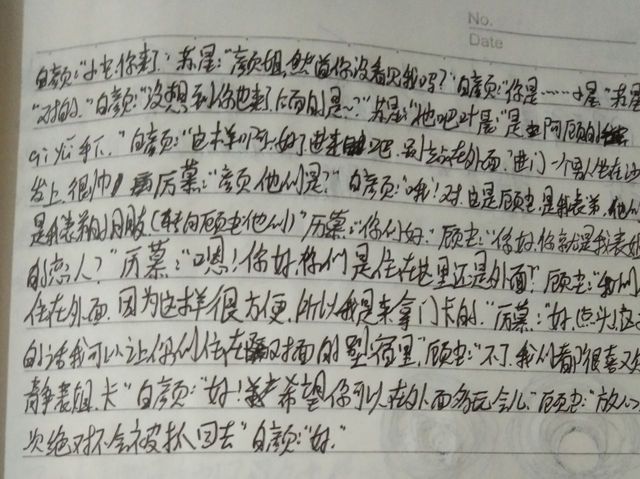 No.
Date
白颜:“小忠你来了”苏星:“颜颜姐,然首你没看见我吗?”白颜:“你是……小星”苏星
“对的.”白颜:“没想到你也来了后面的是~?”苏星:“他吧叶墨”是阿顾的
手下.”白颜:“这样啊~好了进来吧.别站在外面.”进门一个男人坐在沙
发上.很帅厉慕:“颜颜他们是?”白颜:“哦!对.也是顾忠.是我表弟.他们
是我表弟的朋友(转向顾忠他们)”厉慕:“你们好.”顾忠:“你好.你就是我表姐
的恋人?”厉慕:“嗯!你好.你们是住在这里还是外面?”顾忠:“我们
住在外面.因为这样很方便.所以我是来拿门卡的.”厉慕:“好.点头)这
的话我可以让你们住在对面的别墅里”顾忠:“不了.我们都很喜欢
静表姐.卡”白颜:“好!希望你可以在外面多玩会儿”顾忠:“放心
次绝对不会被抓回去”白颜:“好.”